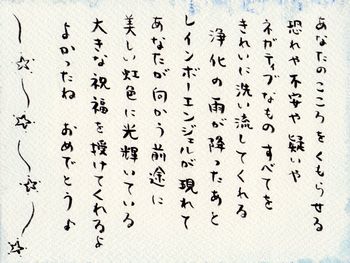 あなたのこころをくもらせる
恐れや不安や疑いや
ネガティブなもの すべてを
きれいに洗い流してくれる
浄化の雨が降ったあと
レインボーエンジェルが現れて
あなたが向かう前途に
美しい虹色に光輝いている
大きな祝福を授けてくれるよ
よかったね おめでとう♪